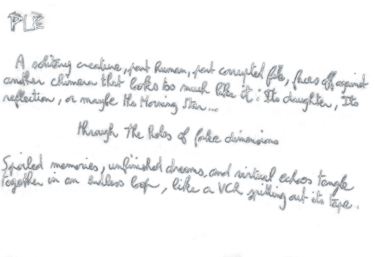 PLE
A solitary creature, part Human, part corrupted file, faces off against
another chimera that looks too much like it: Its daughter, Its
reflection, or maybe the Morning Star...
Through the Holes of fake dimensions
Spoiled memories, unfinished dreams, and virtual echoes tangle
together in an endless loop, like a VCR spitting out its tape.